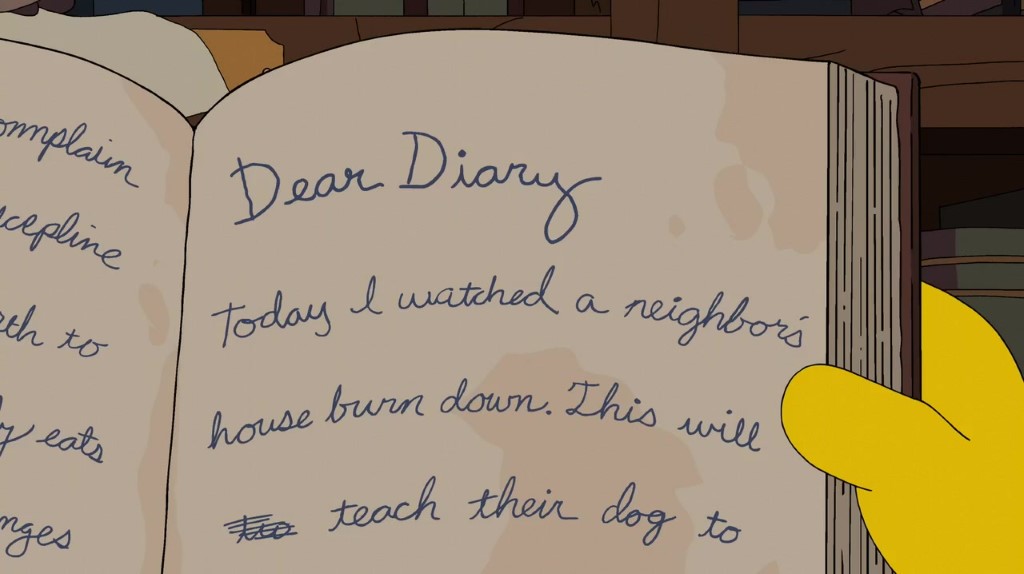 omplain
cepline
th to
y eats
nges
Dear Diary
Today I watched a neighbor's
house burn down. This will
teach their dog to